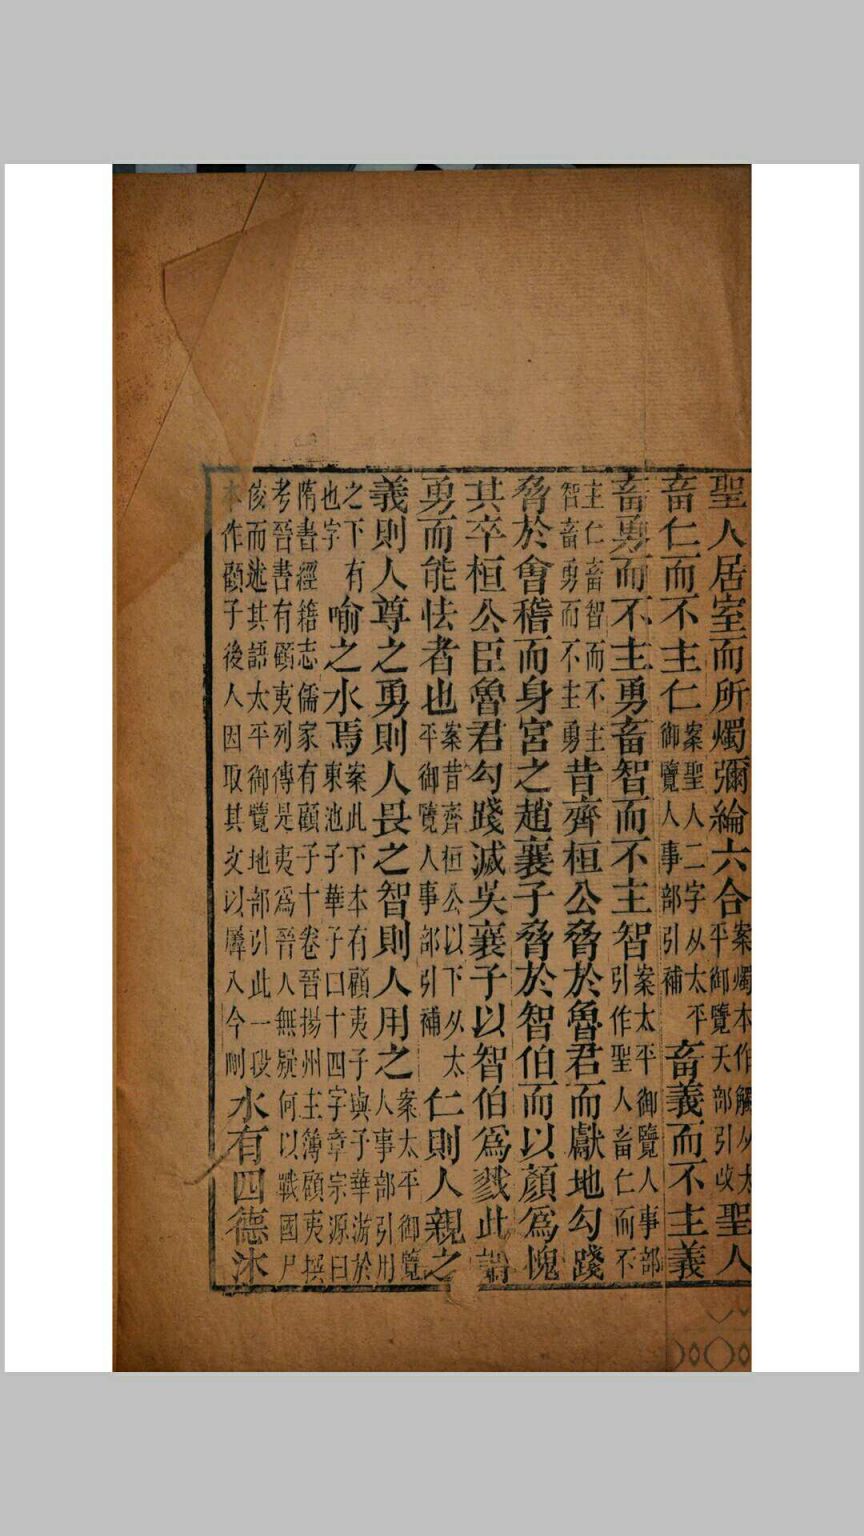 聖人居室而所燭彌綸六合案燭本作觸从太平御覽天部引改聖人
畜仁而不主仁案聖人二字从太平御覽人事部引補畜義而不主義
畜勇而不主勇畜智而不主智案太平御覽人事部引作聖人畜仁而不
主仁畜智而不主智畜勇而不主勇昔齊桓公脅於魯君而獻地勾踐
脅於會稽而身宮之趙襄子脅於智伯而以顏爲愧
其卒桓公臣魯君勾踐滅吳襄子以智伯爲戮此謂
勇而能怯者也案昔齊桓公以下从太平御覽人事部引補仁則人親之
義則人尊之勇則人畏之智則人用之案太平御覽人事部引用
之下有也字喻之水焉案此下本有顧夷子與子華游於東池子華子口十四字章宗源曰
隋書經籍志儒家有顧子十卷晉揚州主簿顧夷撰考晉書有顧夷列傳是夷爲晉人無疑何以戰國尸
佼而述其語太平御覽地部引此一段本作顧子後人因取其文以羼入今刪水有四德沐